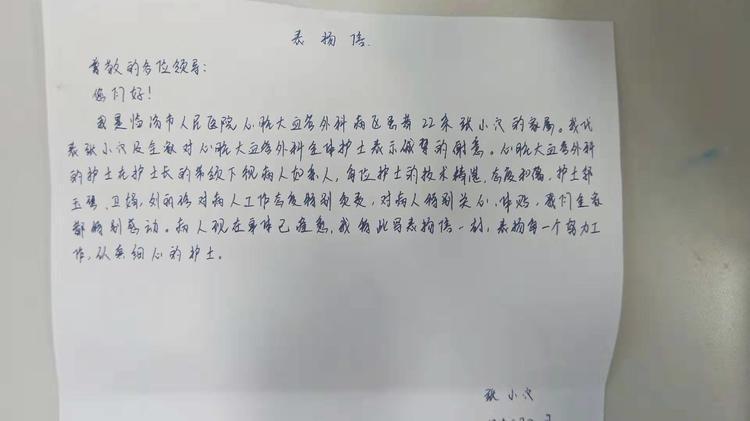 表扬信.
尊敬的各位领导:
您们好!
我是临汾市人民医院心脏大血管外科病区患者22床张小六的家属。我代
表张小六及全家对心脏大血管外科全体护士表示诚挚的谢意。心脏大血管外科
的护士在护士长的带领下视病人如亲人,每位护士的技术精湛,态度和蔼,护士郭
玉 卫 刘 对病人工作态度特别负责,对病人特别关心、体贴,我们全家
都特别感动。病人现在身体已痊愈,我特此写表扬信一封,表扬每一个努力工
作,认真细心的护士。
张小六